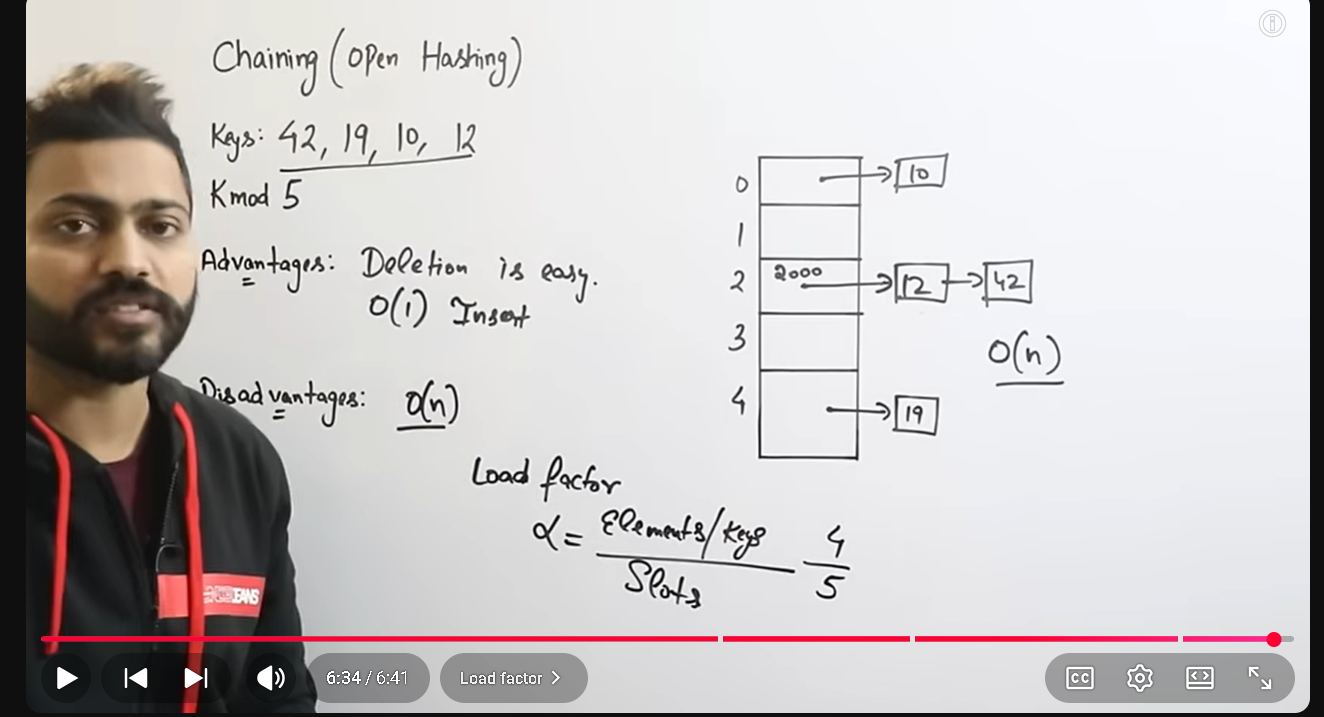 Chaining (open Hashing)
Keys: 42, 19, 10, 12
Kmod 5
Advantages: Deletion is easy.
O(1) Insert
Disadvantages: O(n)
0 10
1
2 2000 12 42
3
O(n)
4 19
Load factor
α = Elements/Keys
Slots
4
5
6:34 / 6:41
Load factor >
CC